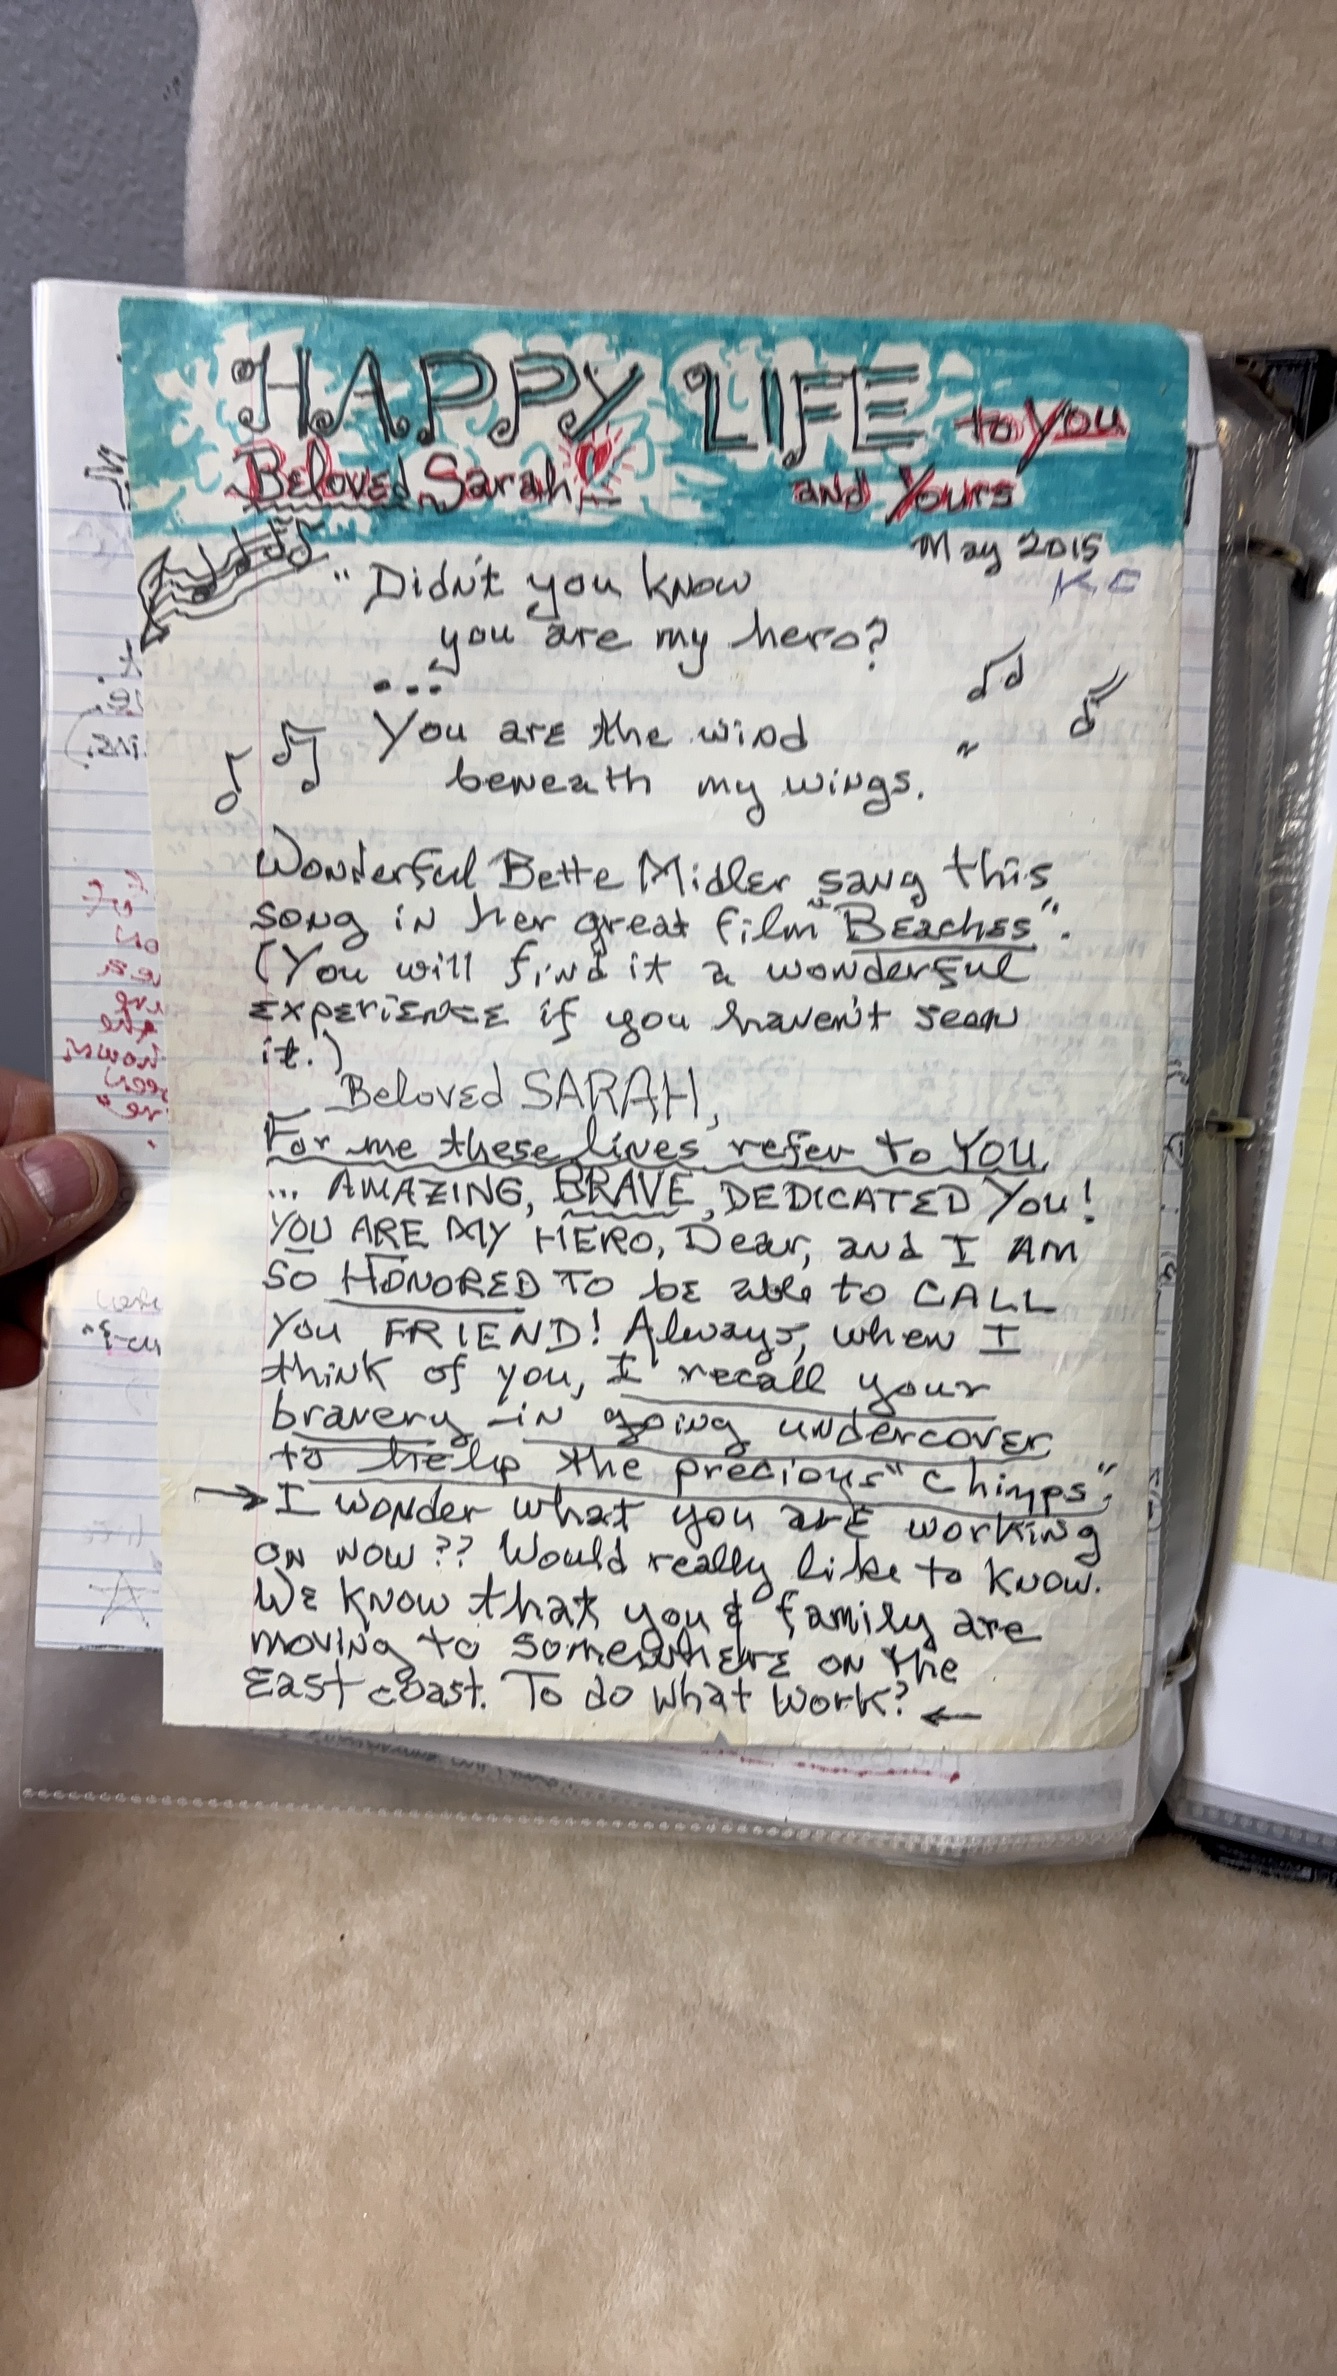 HAPPY LIFE to You
Beloved Sarah and Yours
May 2015
KC
"Didn't you know
you are my hero?
...
You are the wind "
beneath my wings.
Wonderful Bette Midler sang this
song in her great film "Beaches".
(You will find it a wonderful
experience if you haven't seen
it.)
Beloved SARAH,
For me these lines refer to YOU
... AMAZING, BRAVE, DEDICATED You!
YOU ARE MY HERO, Dear, and I AM
SO HONORED TO be able to CALL
You FRIEND! Always, when I
think of you, I recall your
bravery in going undercover
to help the precious "Chimps".
→ I wonder what you are working
on now?? Would really like to know.
We know that you & family are
moving to somewhere on the
East coast. To do what work? ←